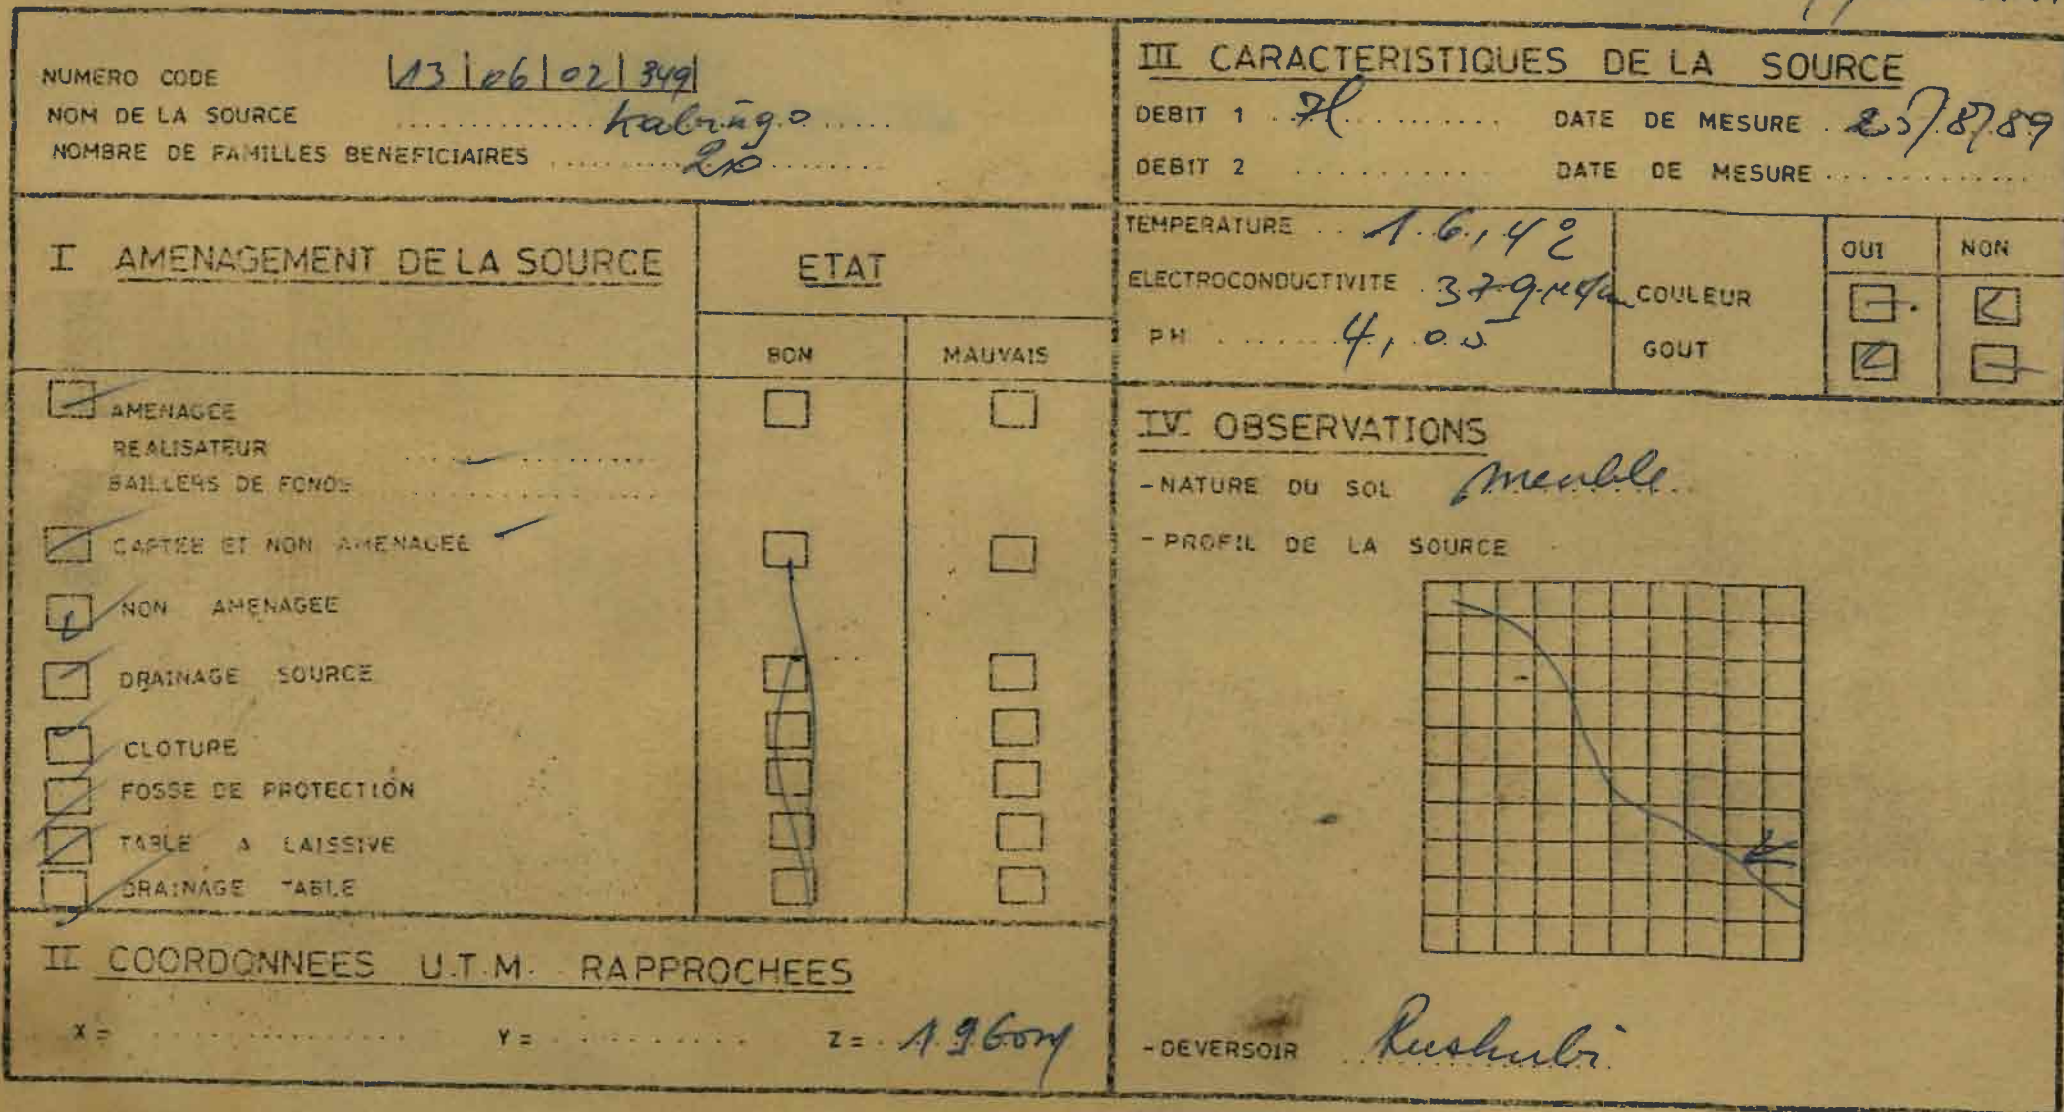 NUMERO CODE |13|06|02|349|
NOM DE LA SOURCE
NOMBRE DE FAMILLES BENEFICIAIRES 20
I AMENAGEMENT DE LA SOURCE
ETAT
BON MAUVAIS
AMENAGEE
REALISATEUR
BAILLERS DE FONDS
CAPTEE ET NON AMENAGEE
NON AMENAGEE
DRAINAGE SOURCE
CLOTURE
FOSSE DE PROTECTION
TABLE A LAISSIVE
DRAINAGE TABLE
II COORDONNEES U.T.M. RAPPROCHEES
X = Y = Z = 1960m
III CARACTERISTIQUES DE LA SOURCE
DEBIT 1 DATE DE MESURE 25/8/89
DEBIT 2 DATE DE MESURE
TEMPERATURE 16,4°
ELECTROCONDUCTIVITE 379
PH 4,05
OUI NON
COULEUR
GOUT
IV. OBSERVATIONS
- NATURE DU SOL meuble
- PROFIL DE LA SOURCE
- DEVERSOIR Rushubi